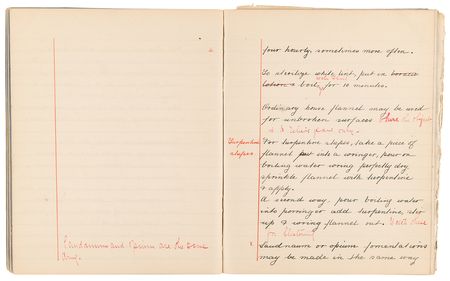 Laudanum and Opium are the same
drug.
four hourly, sometimes more often.
To sterilize white lint, put in boracic
lotion & boil for 10 minutes.
Ordinary house flannel may be used
for unbroken surfaces. Where the object
is to relieve pain only.
Turpentine
stupes.
For turpentine stupes, take a piece of
flannel put into a wringer, pour on
boiling water wring perfectly dry
sprinkle flannel with turpentine
& apply.
A second way, pour boiling water
into porringer add turpentine, stir
up & wring flannel out.
1. Laudanum or opium fomentations
may be made in the same way